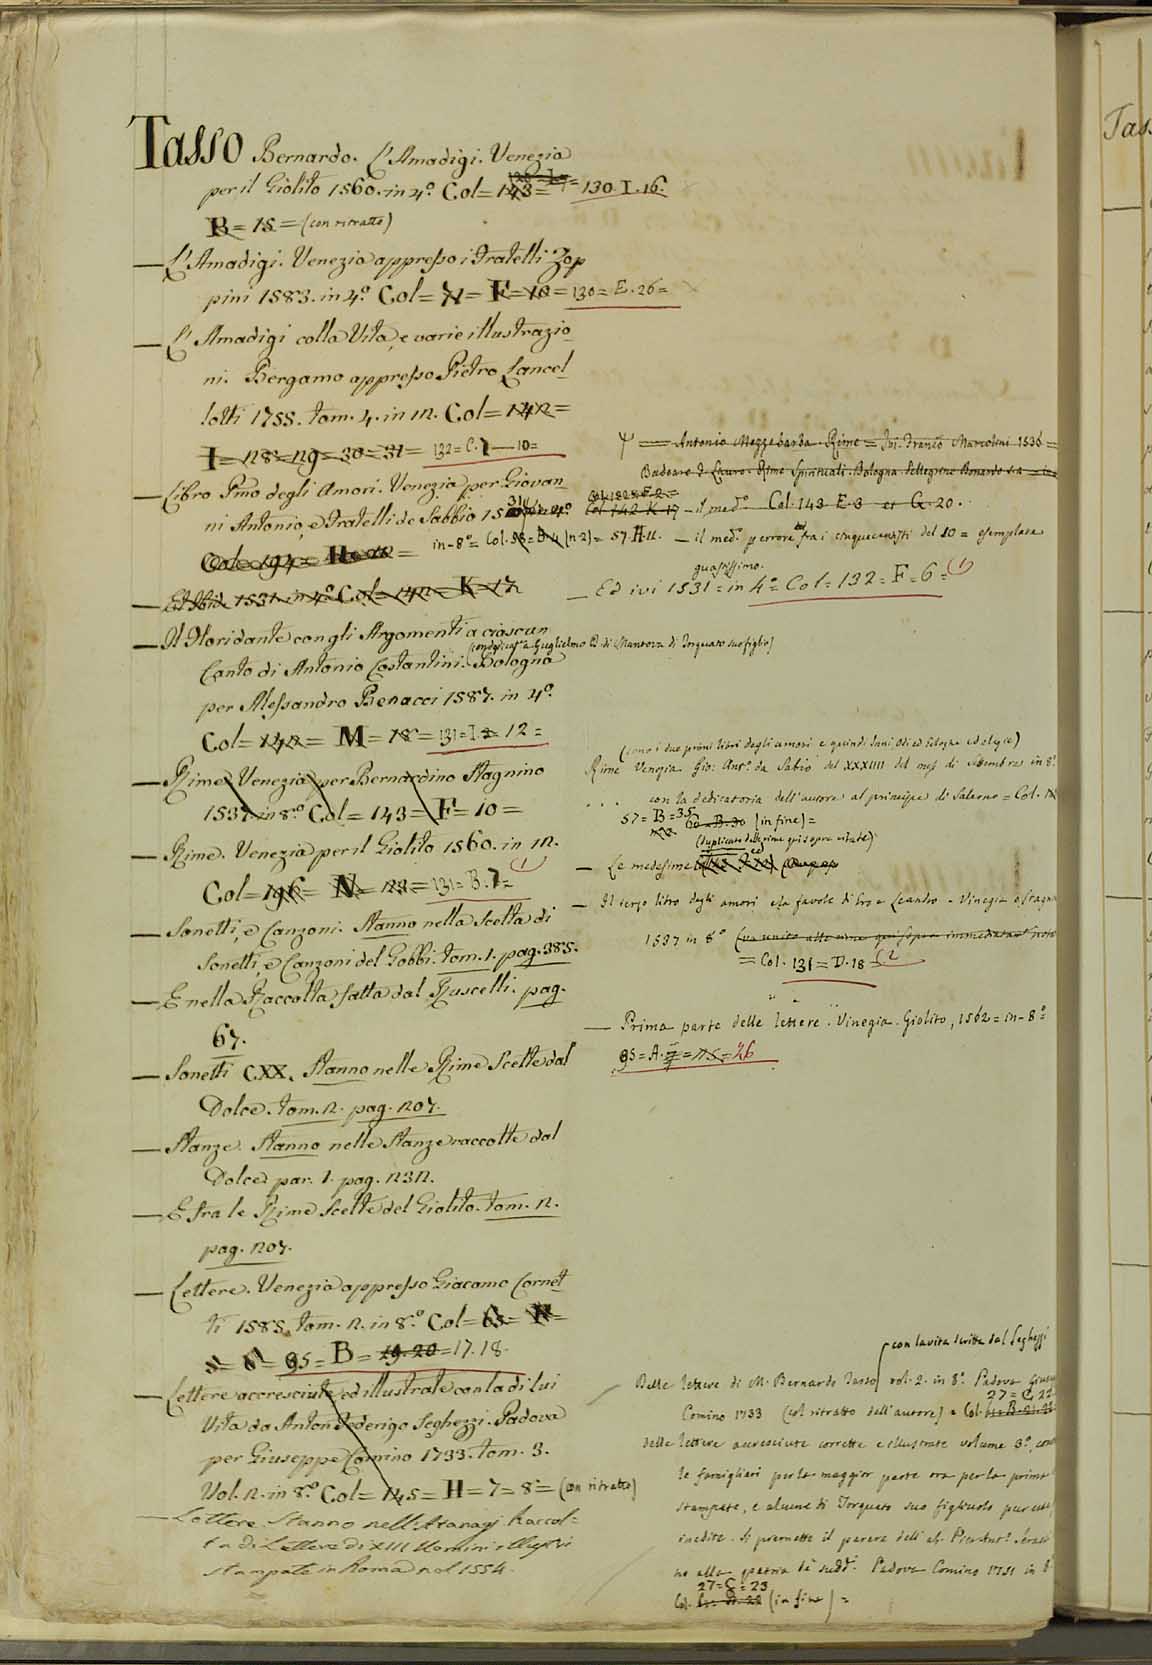 Tasso Bernardo. L'Amadigi. Venezia
per il Giolito 1560. in 4.º Col = 143 = = 130. I. 16.
B = 15 = (con ritratto)
— L'Amadigi. Venezia appresso i Fratelli Zop
pini 1583. in 4.º Col = 71 = F = 10 = 130 = E. 26 =
— L'Amadigi colla Vita, e varie illustrazio
ni. Bergamo appresso Pietro Lancel
lotti 1755. tom. 4. in 12. Col = 142 =
I = 28 = 29 = 30 = 31 = 132 = C. 7 — 10 =
— Libro Pmo degli Amori. Venezia per Giovan
ni Antonio, e Fratelli de Sabbio 15 31 in 4.º
Col = 194 = H = 12 = in - 8º = Col. = (n. 2) = 57. H. 11.
— Ed Ibid. 1531. in 4.º Col = 142 = K = 17
— Il Floridante con gli Argomenti a ciascun
Canto di Antonio Costantini. Bologna
per Alessandro Benacci 1587. in 4.º
Col = 142 = M = 18 = 131 = I. 12 =
— Rime. Venezia per Bernardino Stagnino
1537. in 8.º Col = 143 = F = 10 =
— Rime. Venezia per il Giolito 1560. in 12.
Col = 196 = N = 121 = 131 = B. 7 = (1)
— Sonetti, e Canzoni. Stanno nella Scelta di
Sonetti, e Canzoni del Gobbi. tom. 1. pag. 385.
— E nella Raccolta fatta dal Ruscelli. pag.
67.
— Sonetti CXX. Stanno nelle Rime Scelte dal
Dolce. tom. 2. pag. 207.
— Stanze. Stanno nelle Stanze raccolte dal
Dolce par. 1. pag. 232.
— E fra le Rime Scelte del Giolito. tom. 2.
pag. 207.
— Lettere. Venezia appresso Giacomo Cornet
ti 1585. tom. 2. in 8.º Col = 65 = N =
= 6 = 95 = B = 19. 20 = 17. 18.
— Lettere accresciute, ed illustrate con la di lui
Vita da Anton Federigo Seghezzi. Padova
per Giuseppe Comino 1733. tom. 3.
Vol. 2. in 8.º Col = 145 = H = 7 = 8 = (con ritratto)
— Lettere. Stanno nell'Atanagi Raccol-
ta di Lettere di XIII Uomini illustri
stampate in Roma nel 1554.
Antonio Mezzabarba. Rime = Ivi. Franc.º Marcolini 1536 =
Badoaro Rime Spirituali. Bologna. Pellegrino Bonardo s. a. = in
Col. 132 = F. 2 =
Col. 142 K. 17 — il med.º Col. 143 E. 3 et G. 20.
— il med.º per errore fra i cinquecentisti del 10 = esemplare
guastissimo.
— Ed ivi 1531 = in 4.º = Col = 132 = F = 6 = (1)
a Guglielmo D. di Mantova di Torquato suo figlio)
(sono i due primi libri degli amori e quindi Inni, Odi ed Egloghe ed elegie)
Rime Venezia Gio: Ant.º da Sabio del XXXIIII del mese di in 8.º
. . . con la dedicatoria dell'autore al principe di Salerno = Col.
57 = B = 35 60 = B. 30 (in fine) =
(duplicato delle rime qui sopra citate)
— Le medesime
— Il terzo libro degli amori e la favole di Ero e Leandro - Vinegia
1537 in 8º (va unito alle rime qui sopra
= Col. 131 = D. 18 = 2
— Prima parte delle lettere. Vinegia. Giolito, 1562 = in - 8º =
95 = A. = 26
con la vita scritta dal Seghezzi
Delle lettere di M. Bernardo Tasso vol. 2. in 8.º Padova
27 = C 22
Comino 1733 (col ritratto dell'autore) = Col.
delle lettere accresciute corrette e illustrate volume 3.º,
le famigliari per la maggior parte ora per la prima
stampate, e alcune di Torquato suo figliuolo pur esse
inedite. Si premette il parere dell'ab. Pier Ant.º Serassi
no alla patria de' sudd.i Padova Comino 1751 in 8
27 = C = 23
Col. (in fine) =
Tas